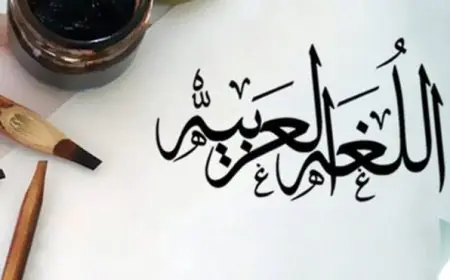 اللُغَه العَرَبيه